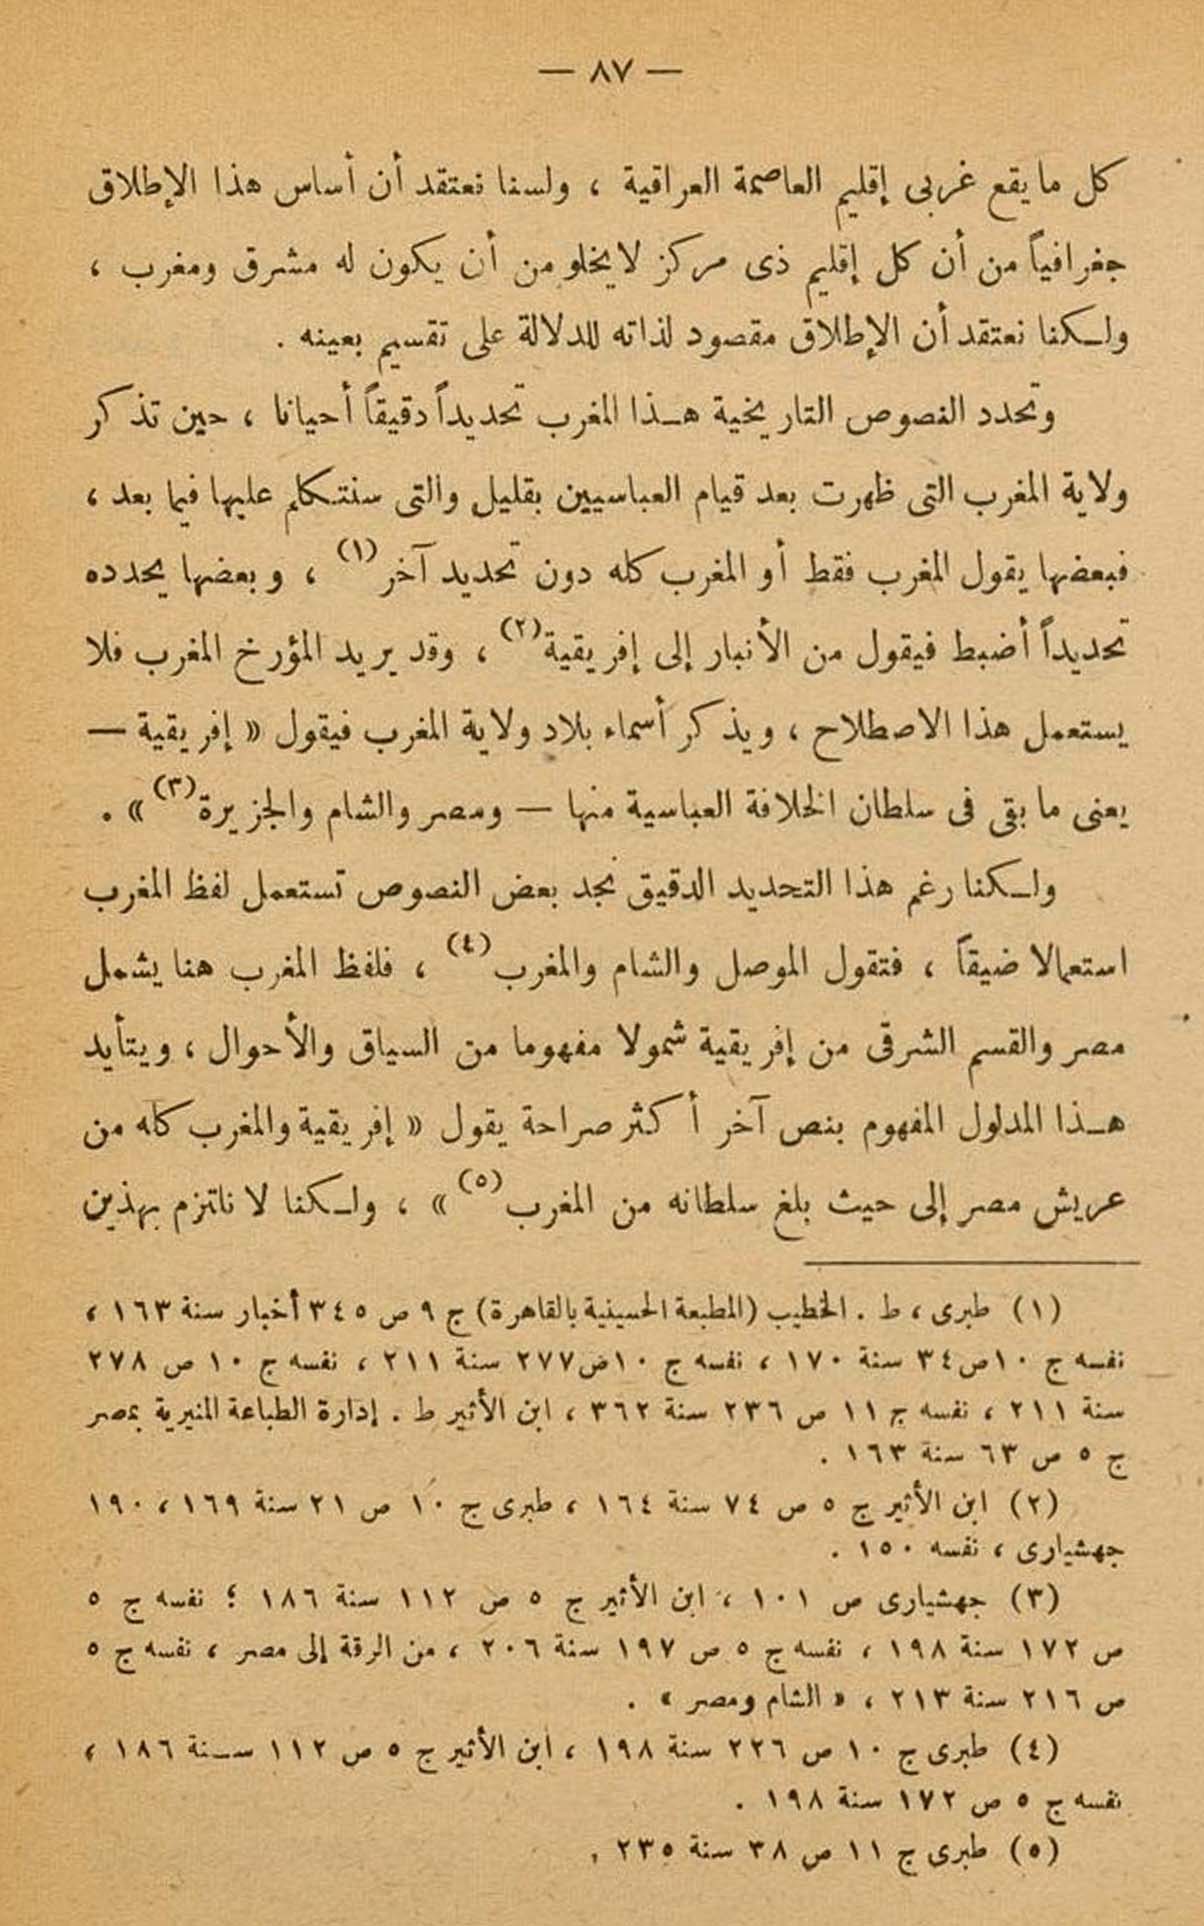 — ٨٧ —
كل ما يقع غربى إقليم العاصمة العراقية ، ولسنا نعتقد أن أساس هذا الإطلاق
جغرافياً من أن كل إقليم ذى مركز لا يخلو من أن يكون له مشرق ومغرب ،
ولكنا نعتقد أن الإطلاق مقصود لذاته للدلالة على تقسيم بعينه .
وتحدد النصوص التاريخية هذا المغرب تحديداً دقيقاً أحيانا ، حين تذكر
ولاية المغرب التى ظهرت بعد قيام العباسيين بقليل والتى سنتكلم عليها فيما بعد ،
فبعضها يقول المغرب فقط أو المغرب كله دون تحديد آخر (١) ، وبعضها يحدده
تحديداً أضبط فيقول من الأنبار إلى إفريقية (٢) ، وقد يريد المؤرخ المغرب فلا
يستعمل هذا الاصطلاح ، ويذكر أسماء بلاد ولاية المغرب فيقول « إفريقية —
يعنى ما بقى فى سلطان الخلافة العباسية منها — ومصر والشام والجزيرة (٣) » .
ولكنا رغم هذا التحديد الدقيق نجد بعض النصوص تستعمل لفظ المغرب
استعمالا ضيقاً ، فتقول الموصل والشام والمغرب (٤) ، فلفظ المغرب هنا يشمل
مصر والقسم الشرقى من إفريقية شمولا مفهوما من السياق والأحوال ، ويتأيد
هذا المدلول المفهوم بنص آخر أكثر صراحة يقول « إفريقية والمغرب كله من
عريش مصر إلى حيث بلغ سلطانه من المغرب (٥) » ، ولكنا لا نلتزم بهذين
(١) طبرى ، ط . الخطيب (المطبعة الحسينية بالقاهرة) ج ٩ ص ٣٤٥ أخبار سنة ١٦٣ ،
نفسه ج ١٠ ص ٣٤ سنة ١٧٠ ، نفسه ج ١٠ ص ٢٧٧ سنة ٢١١ ، نفسه ج ١٠ ص ٢٧٨
سنة ٢١١ ، نفسه ج ١١ ص ٢٣٦ سنة ٣٦٢ ، ابن الأثير ط . إدارة الطباعة المنيرية بمصر
ج ٥ ص ٦٣ سنة ١٦٣ .
(٢) ابن الأثير ج ٥ ص ٧٤ سنة ١٦٤ ، طبرى ج ١٠ ص ٢١ سنة ١٦٩ ، ١٩٠
جهشيارى ، نفسه ١٥٠ .
(٣) جهشيارى ص ١٠١ ، ابن الأثير ج ٥ ص ١١٢ سنة ١٨٦ ؛ نفسه ج ٥
ص ١٧٢ سنة ١٩٨ ، نفسه ج ٥ ص ١٩٧ سنة ٢٠٦ ، من الرقة إلى مصر ، نفسه ج ٥
ص ٢١٦ سنة ٢١٣ ، « الشام ومصر » .
(٤) طبرى ج ١٠ ص ٢٢٦ سنة ١٩٨ ، ابن الأثير ج ٥ ص ١١٢ سنة ١٨٦ ،
نفسه ج ٥ ص ١٧٢ سنة ١٩٨ .
(٥) طبرى ج ١١ ص ٣٨ سنة ٢٣٥ .